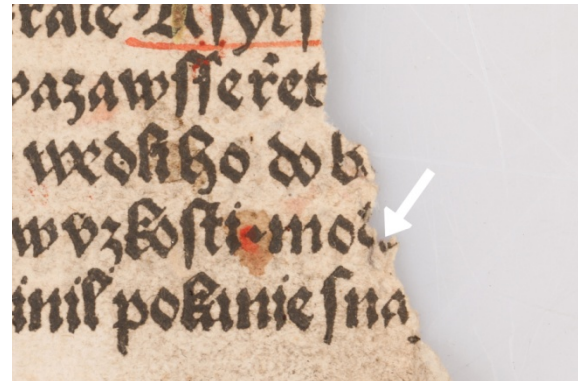 rale Aſyrſ
vazawſſe řet
wedl ho do b
w vzkoſti
inil pokanie ſna